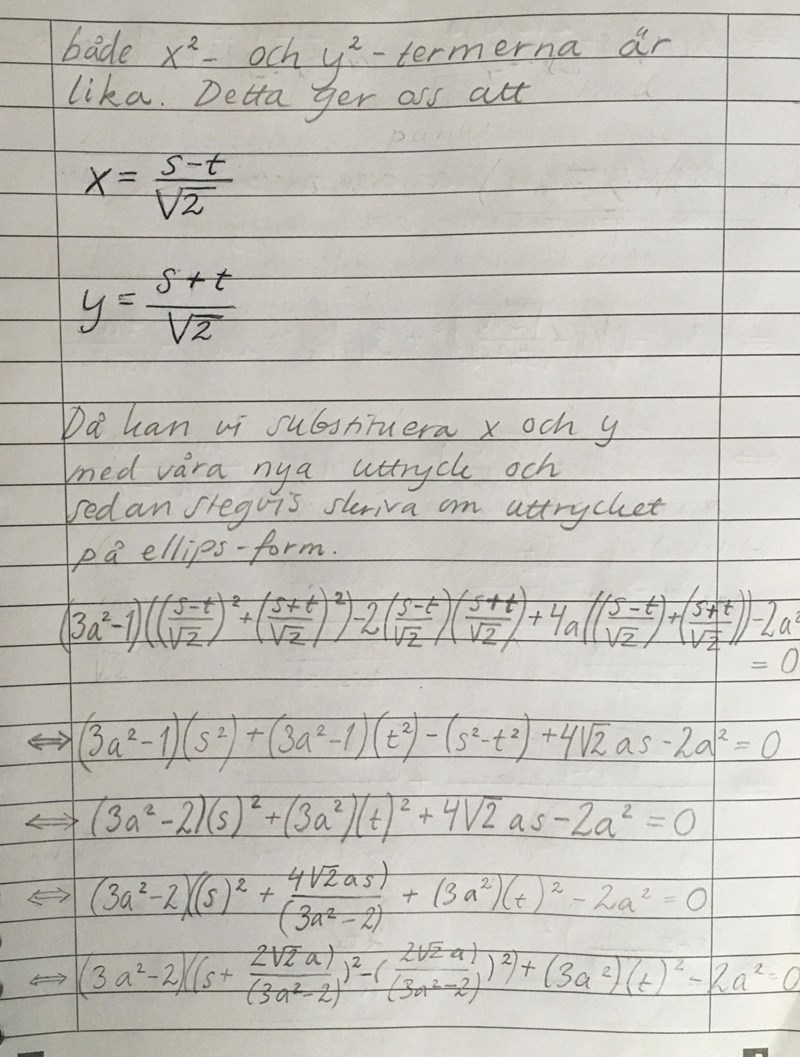 både x²- och y²-termerna är
lika. Detta ger oss att
x = (s-t)/√2
y = (s+t)/√2
Då kan vi substituera x och y
med våra nya uttryck och
sedan stegvis skriva om uttrycket
på ellips-form.
(3a²-1)(((s-t)/√2)²+((s+t)/√2)²)-2((s-t)/√2)((s+t)/√2)+4a(((s-t)/√2)+((s+t)/√2))-2a²
= 0
⇔ (3a²-1)(s²)+(3a²-1)(t²)-(s²-t²)+4√2 as-2a²=0
⇔ (3a²-2)(s)²+(3a²)(t)²+4√2 as-2a²=0
⇔ (3a²-2)((s)²+4√2 as)/(3a²-2)+(3a²)(t)²-2a²=0
⇔ (3a²-2)((s+2√2 a)/(3a²-2))²-(2√2 a)/(3a²-2))²)+(3a²)(t)²-2a²=0